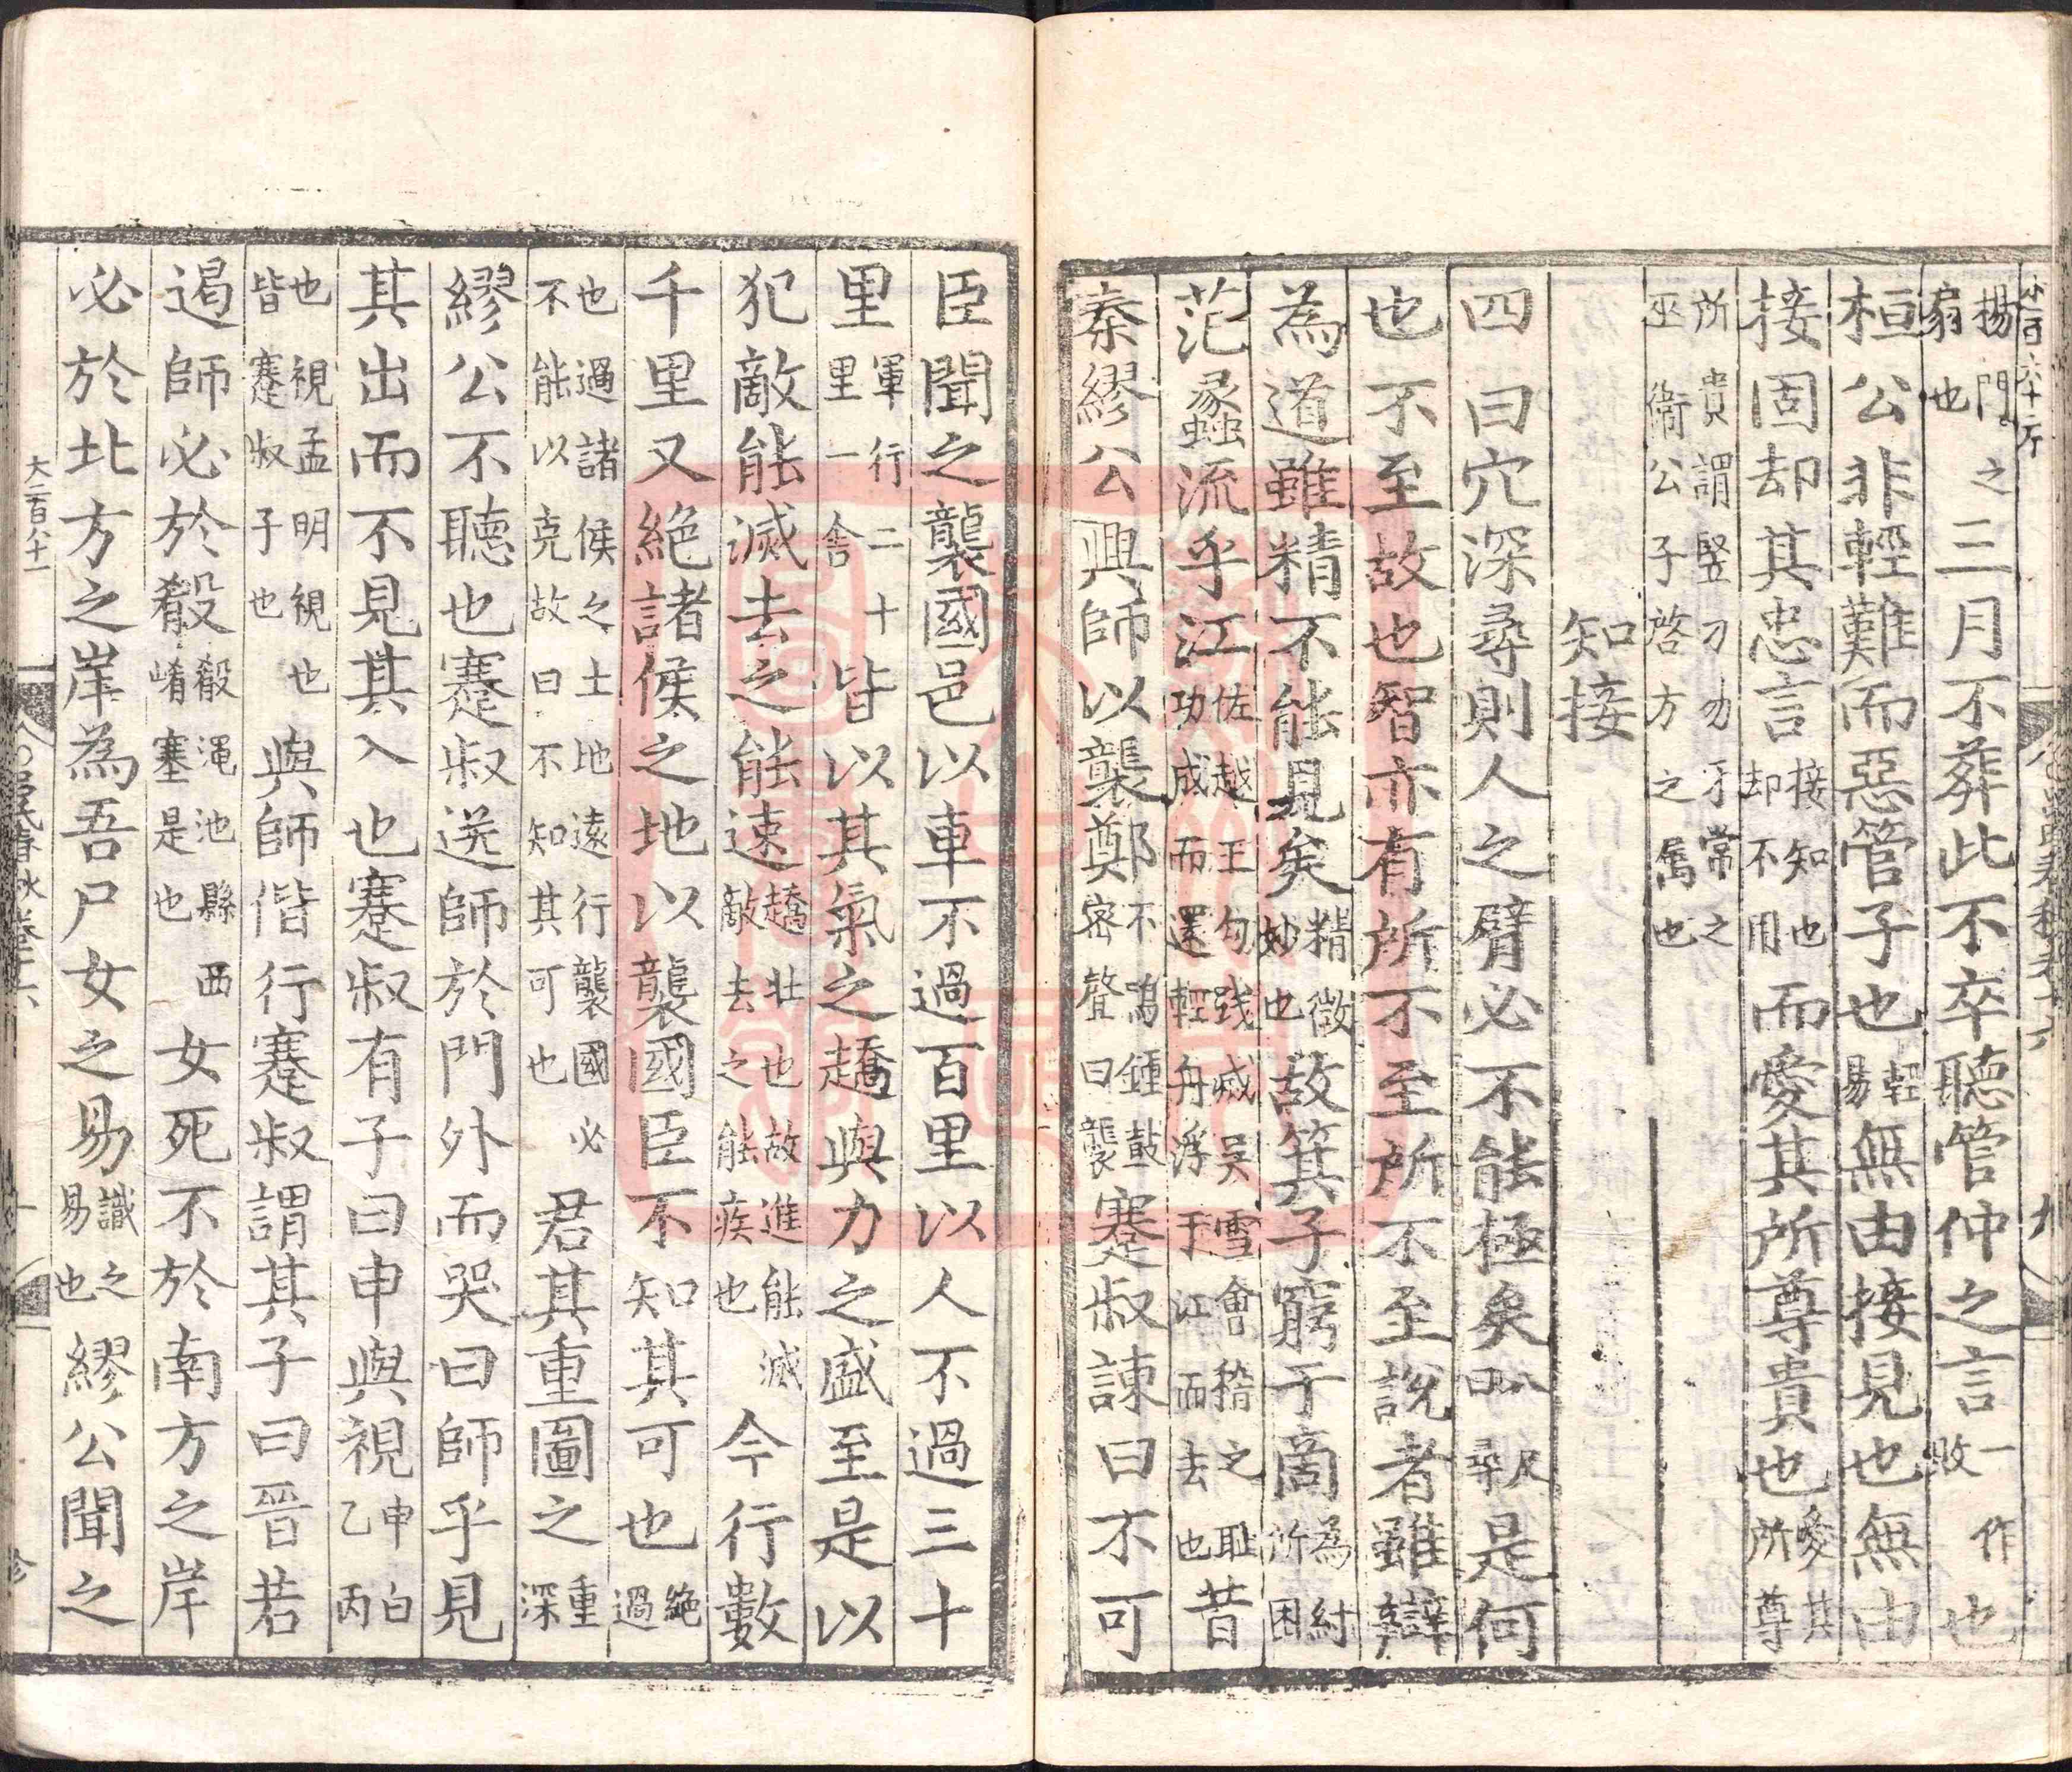 揚門之扇也三月不葬此不卒聽管仲之言一作敗也
桓公非輕難而惡管子也輕易無由接見也無由
接固却其忠言接知也却不用而愛其所尊貴也愛其所尊
所貴謂竪刁易牙常之巫衛公子啓方之屬也
知接
四曰穴深尋則人之臂必不能極矣八尺曰尋是何
也不至故也智亦有所不至所不至說者雖辯
為道雖精不能見矣精微妙也故箕子窮于商為紂所困
范蠡流乎江佐越王勾踐滅吳雪會稽之耻功成而還輕舟浮于江而去也昔
秦繆公興師以襲鄭不鳴鍾鼓密聲曰襲蹇叔諫曰不可
臣聞之襲國邑以車不過百里以人不過三十
里軍行三十里一舍皆以其氣之趫與力之盛至是以
犯敵能滅去之能速趫壯也故進能滅敵去之能疾也今行數
千里又絕諸侯之地以襲國臣不知其可也絕過
也過諸侯之土地遠行襲國必不能以克故曰不知其可也君其重圖之重深
繆公不聽也蹇叔送師於門外而哭曰師乎見
其出而不見其入也蹇叔有子曰申與視申白乙丙
也視孟明視也皆蹇叔子也與師偕行蹇叔謂其子曰晉若
遏師必於殽殽澠池縣西崤塞是也女死不於南方之岸
必於北方之岸為吾尸女之易識之易也繆公聞之
大三百八十一
吕氏春秋卷十六